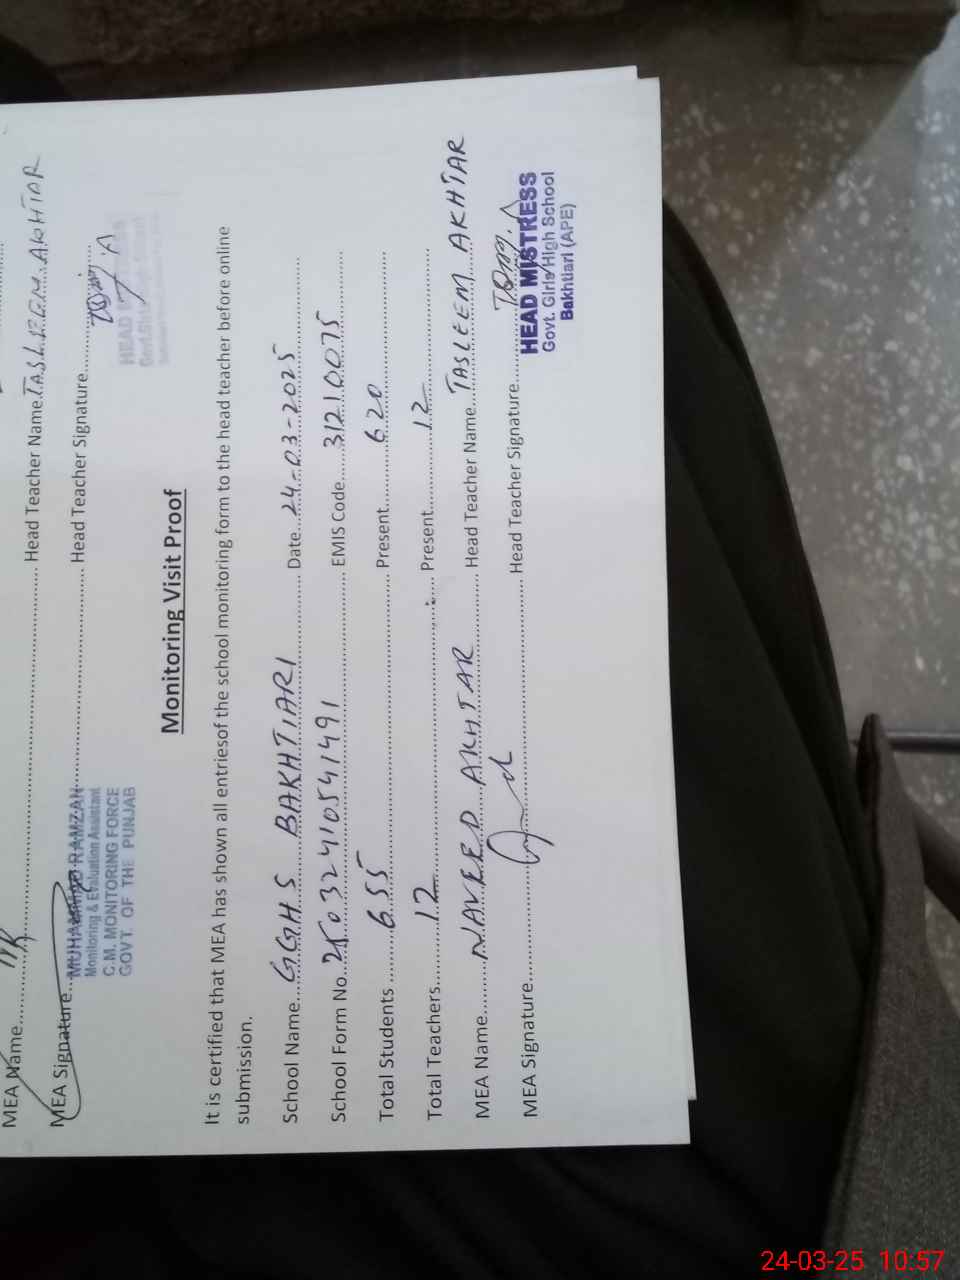 MEA Name.......... Head Teacher Name. TASLEEM AKHTAR
MEA Signature.......... Head Teacher Signature..........
MUHAMMAD RAMZAN
Monitoring & Evaluation Assistant
C.M. MONITORING FORCE
GOVT. OF THE PUNJAB
HEAD
Monitoring Visit Proof
It is certified that MEA has shown all entriesof the school monitoring form to the head teacher before online
submission.
School Name.... GGHS BAKHTIARI .......... Date... 24-03-2025
School Form No.. .......... EMIS Code..... 31210075
Total Students ..... 655 .......... Present..... 620
Total Teachers..... 12 .......... Present..... 12
MEA Name..... NAVEED AKHTAR .......... Head Teacher Name... TASLEEM AKHTAR
MEA Signature.......... Head Teacher Signature..........
HEAD MISTRESS
Govt. Girls High School
Bakhtiari (APE)
24-03-25 10:57